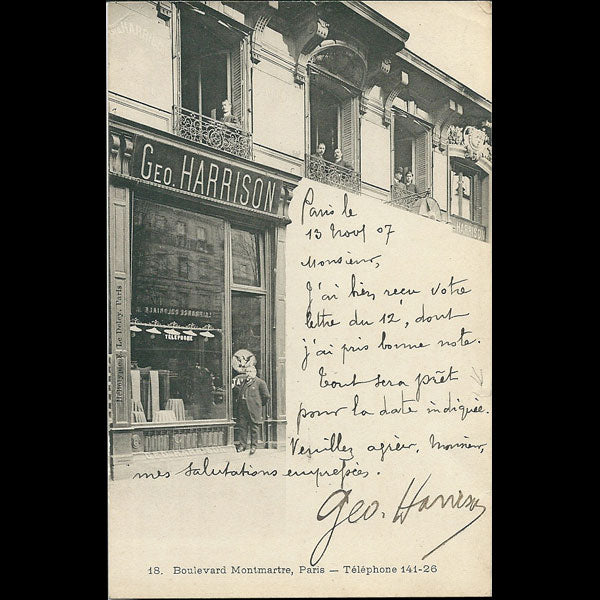 GEO. HARRISON
HARRISON
TÉLÉPHONE
Paris le
13 Nov 07
Monsieur,
J'ai bien reçu votre
lettre du 12, dont
j'ai pris bonne note.
Tout sera prêt
pour la date indiquée.
Veuillez agréer, Monsieur,
mes salutations empressées.
Geo. Harrison
18. Boulevard Montmartre, Paris — Téléphone 141-26